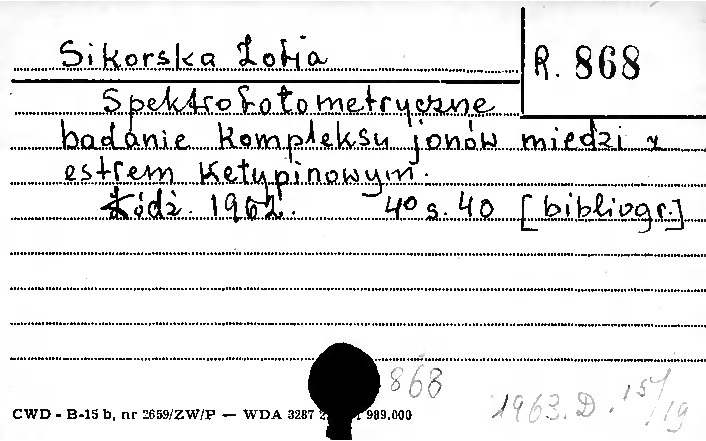 Sikorska Zofia
R. 868
Spektrofotometryczne
badanie kompleksu jonów miedzi z
estrem ketypinowym.
Łódź. 1962. 4° s. 40 [bibliogr.]
868
1963. D. 15/19
CWD - B-15 b, nr 2659/ZW/P — WDA 3287 989.000